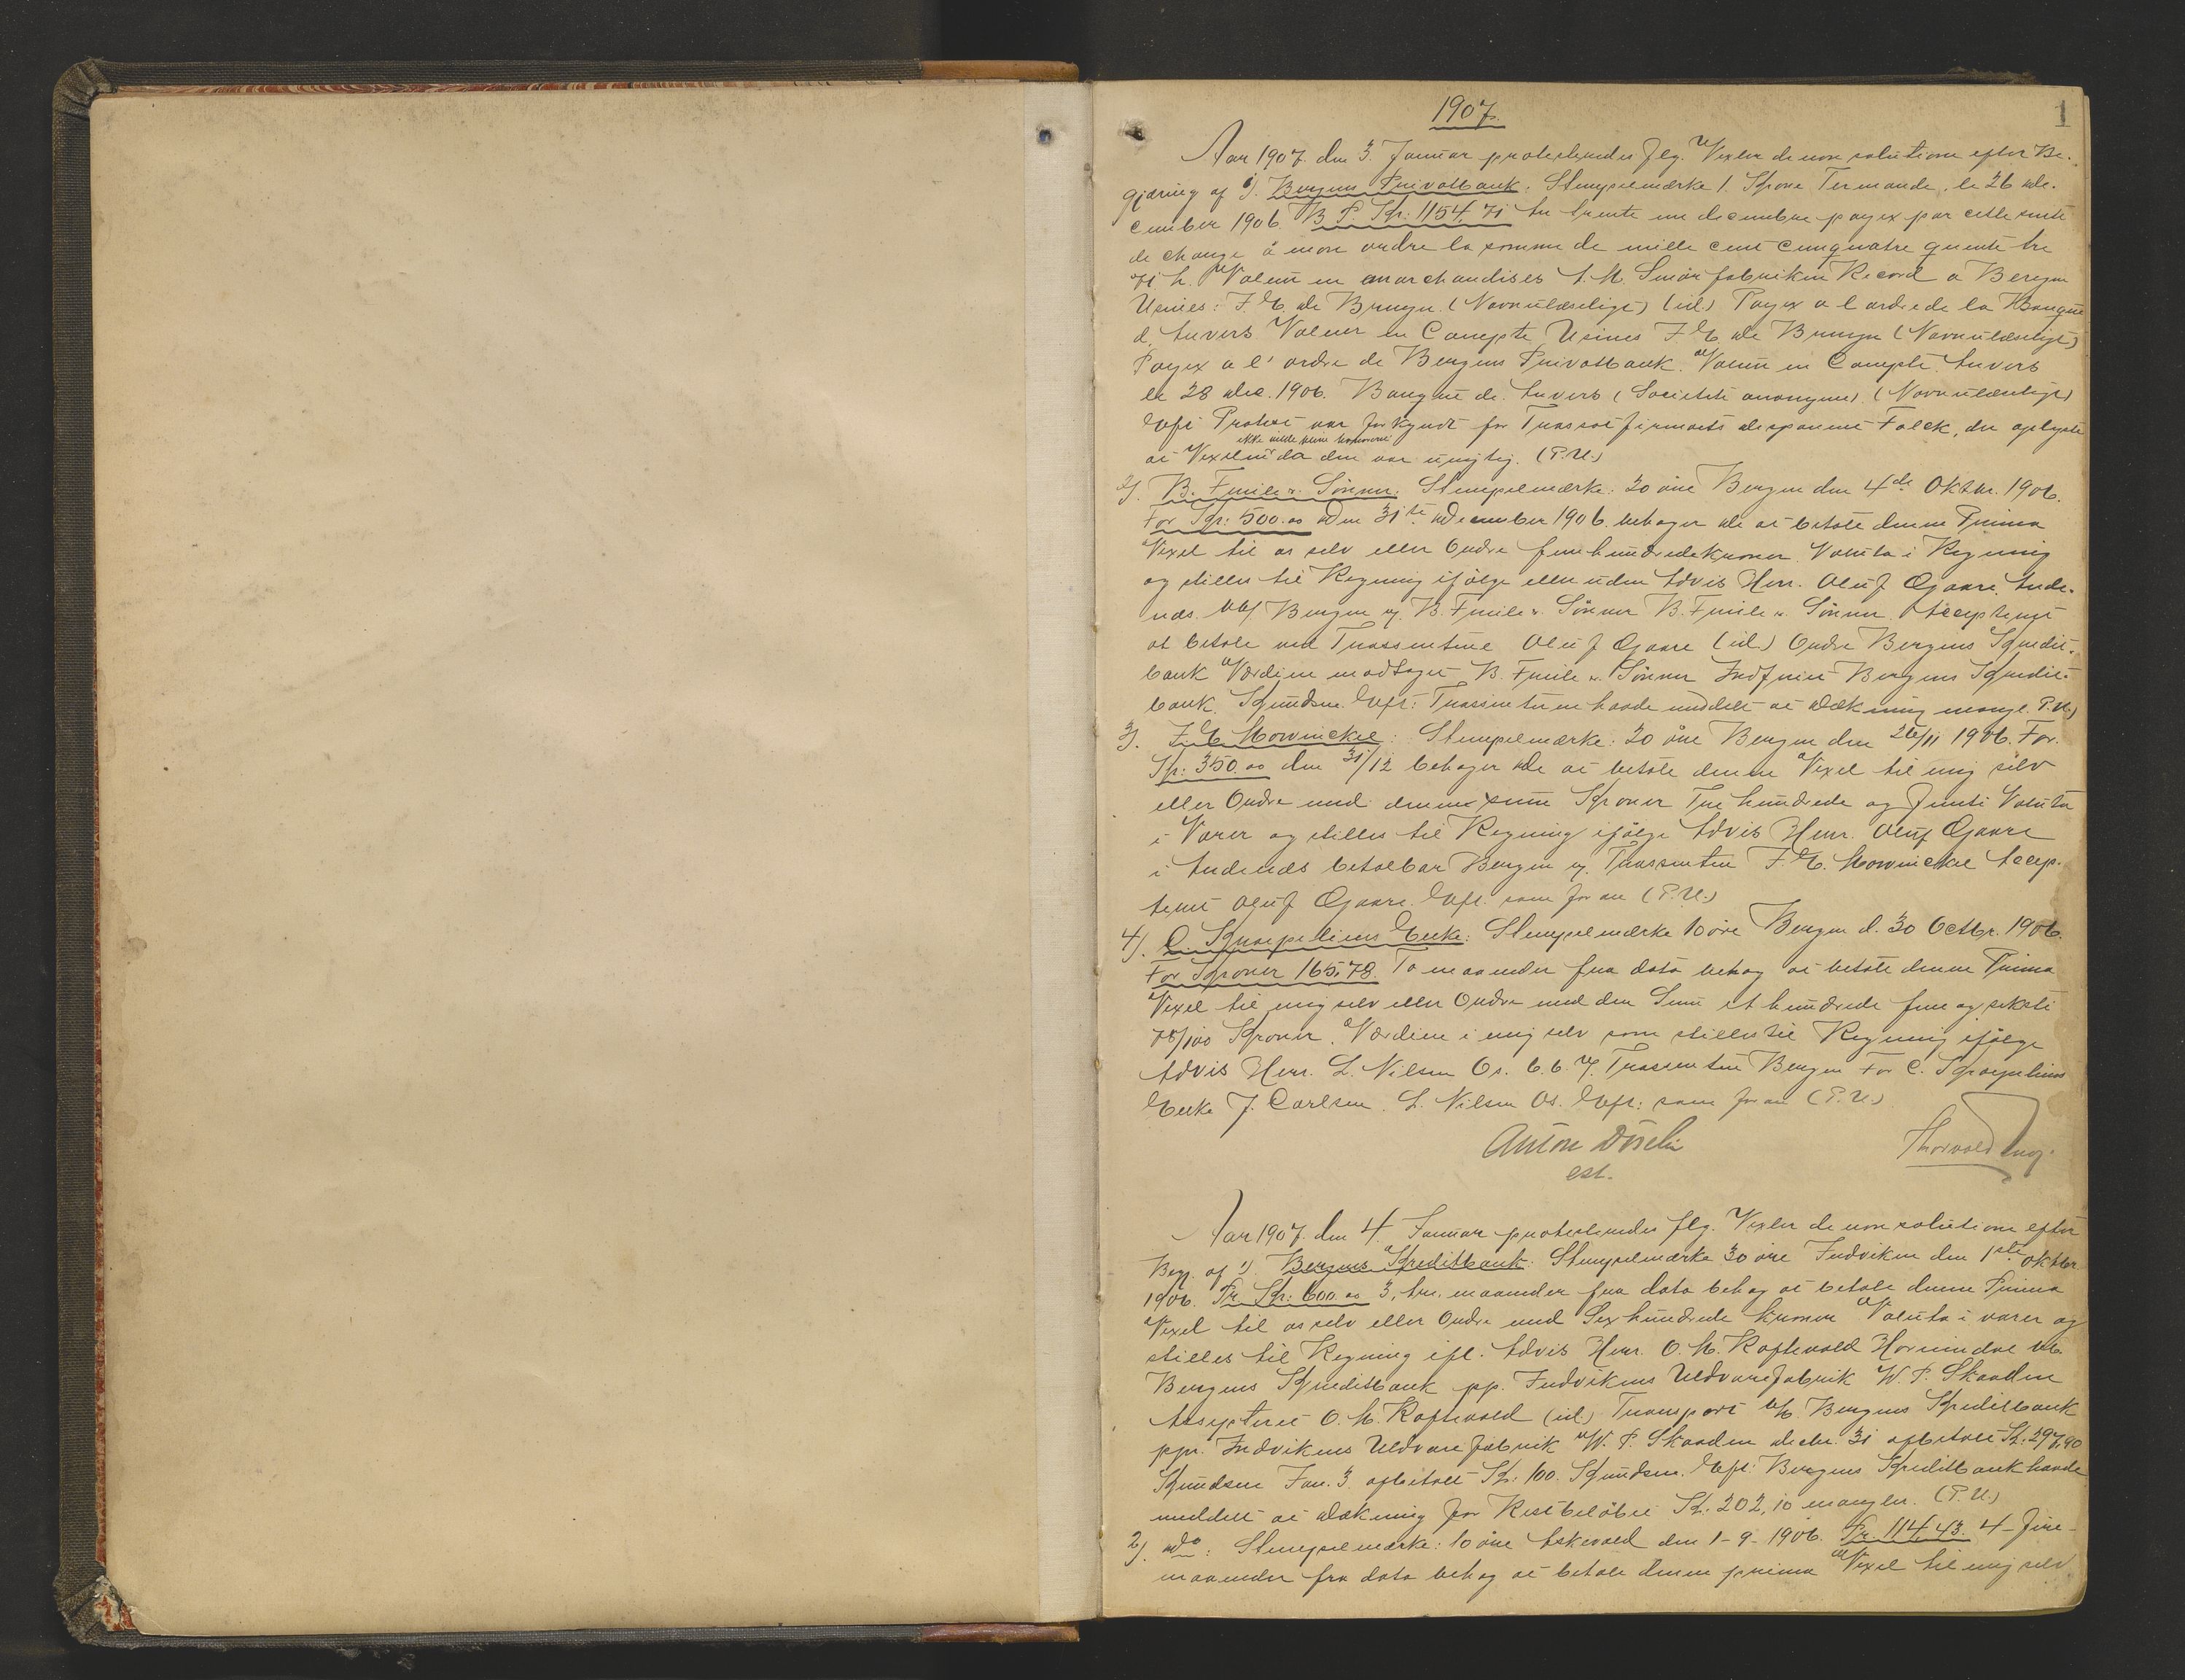 1907.
1
Aar 1907. den 3. Januar protesteredes flg. Vexler de non solutione efter Be-
gjæring af 1). Bergens Privatbank: Stempelmærke 1 Krone Termonde, le 26 de-
cember 1906 B. P. Kr: 1154,71 Au trente un decembre payex par cette
de change à mon ordre la somme de mille cent cinquatre
71 h. Valeur en marchandises A. M. Smörfabriken Record a Bergen
Usines: F. E. de Bruyn. (Navn ulæseligt) (id.) Payex a l ordre de la Banque
d. Anvers Valeur en Compte Usines F. E. de Bruyn (Navn ulæseligt)
Payex a l' ordre de Bergens Privatbank. Valeur en Compte. Anvers
le 28 dec. 1906. Banque de Anvers (Societété anonyme) (Navn ulæseligt)
Eft: Protest var forkyndt for Trassatfirmaets disponent Falck, der oplyste
ikke vilde honoreres
at Vexelen da den var urigtig. (P.U.)
2). B. Friele & Sönner: Stempelmærke: 30 öre Bergen den 4de Oktbr. 1906.
For Kr: 500.00 Den 31te December 1906. behager de at betale denne Prima
Vexel til os selv eller Ordre fem hundrede Kroner. Valuta i Regning
og stilles til Regning ifölge eller uden Advis Herr. Oluf Gjaare, Ande-
næs. Bergen B. Friele & Sönner B. Friele & Sönner. Accepteret
at betale ved Trassentene Oluf Gjaare (id.) Ordre Bergens Kredit-
bank Værdien modtaget B. Friele & Sönner Indfriet Bergens Kredit-
bank. Knudsen. Eft: Trassenterne havde meddelt at dækning mangl. P.U.)
3). F. E. Mowinckel: Stempelmærke: 20 öre Bergen den 26/11 1906. For
Kr: 350.00 den 31/12 behager De at betale denne Vexel til mig selv
eller Ordre med denne sum Kroner Tre hundrede og femti Valuta
i Varer og stilles til Regning ifölge Advis Herr. Oluf Gjaare
i Andenæs betalbar Bergen Trassenten F. E. Mowinckel Accep-
teret Oluf Gjaare. Eft. som foran (P.U.)
4). C. Kroepeliens Enke: Stempelmærke 10 öre Bergen d. 30 Octbr. 1906.
For Kroner 165,78. To maaneder fra dato behag at betale denne Prima
Vexel til mig selv eller Ordre med den Sum et hundrede fem og seksti
78/100 Kroner. Værdien i mig selv som stilles til Regning ifölge
Advis Herr. L. Nilsen Os. Trassenten Bergen For C. Kroepeliens
Enke J. Carlsen. L. Nilsen Os. Eft: som foran (P.U.)
Anton
est.
Thorvald
Aar 1907. den 4. Januar protesteredes flg. Vexler de non solutione efter
Begj. af 1). Bergens Kreditbank: Stempelmærke 30 öre Indviken den 1ste Oktbr
1906. Pr. Kr: 600.00 3, tre, maaneder fra dato behag at betale denne Prima
Vexel til os selv eller Ordre med Sex hundrede kroner Valuta i varer og
stilles til Regning ifl. Advis Herr. O. M. Raftevold Hornindal
Bergens Kreditbank pp. Indvikens Uldvarefabrik W. P. Skaaden
Acsepteret O. M. Raftevold (id.) Transport Bergens Kreditbank
ppr. Indvikens Uldvarefabrik W. P. Skaaden decbr. 31 afbetalt Kr. 297,90
Knudsen Jan. 3. afbetalt Kr: 100. Knudsen. Eft: Bergens Kreditbank havde
meddelt at dækning for Restbelöbet Kr. 202,10 mangler. (P.U.)
2). do: Stempelmærke: 10 öre Askevold den 1-9-1906. Pr. 114,43. 4-fire-
maaneder fra dato behag at betale denne prima Vexel til mig selv